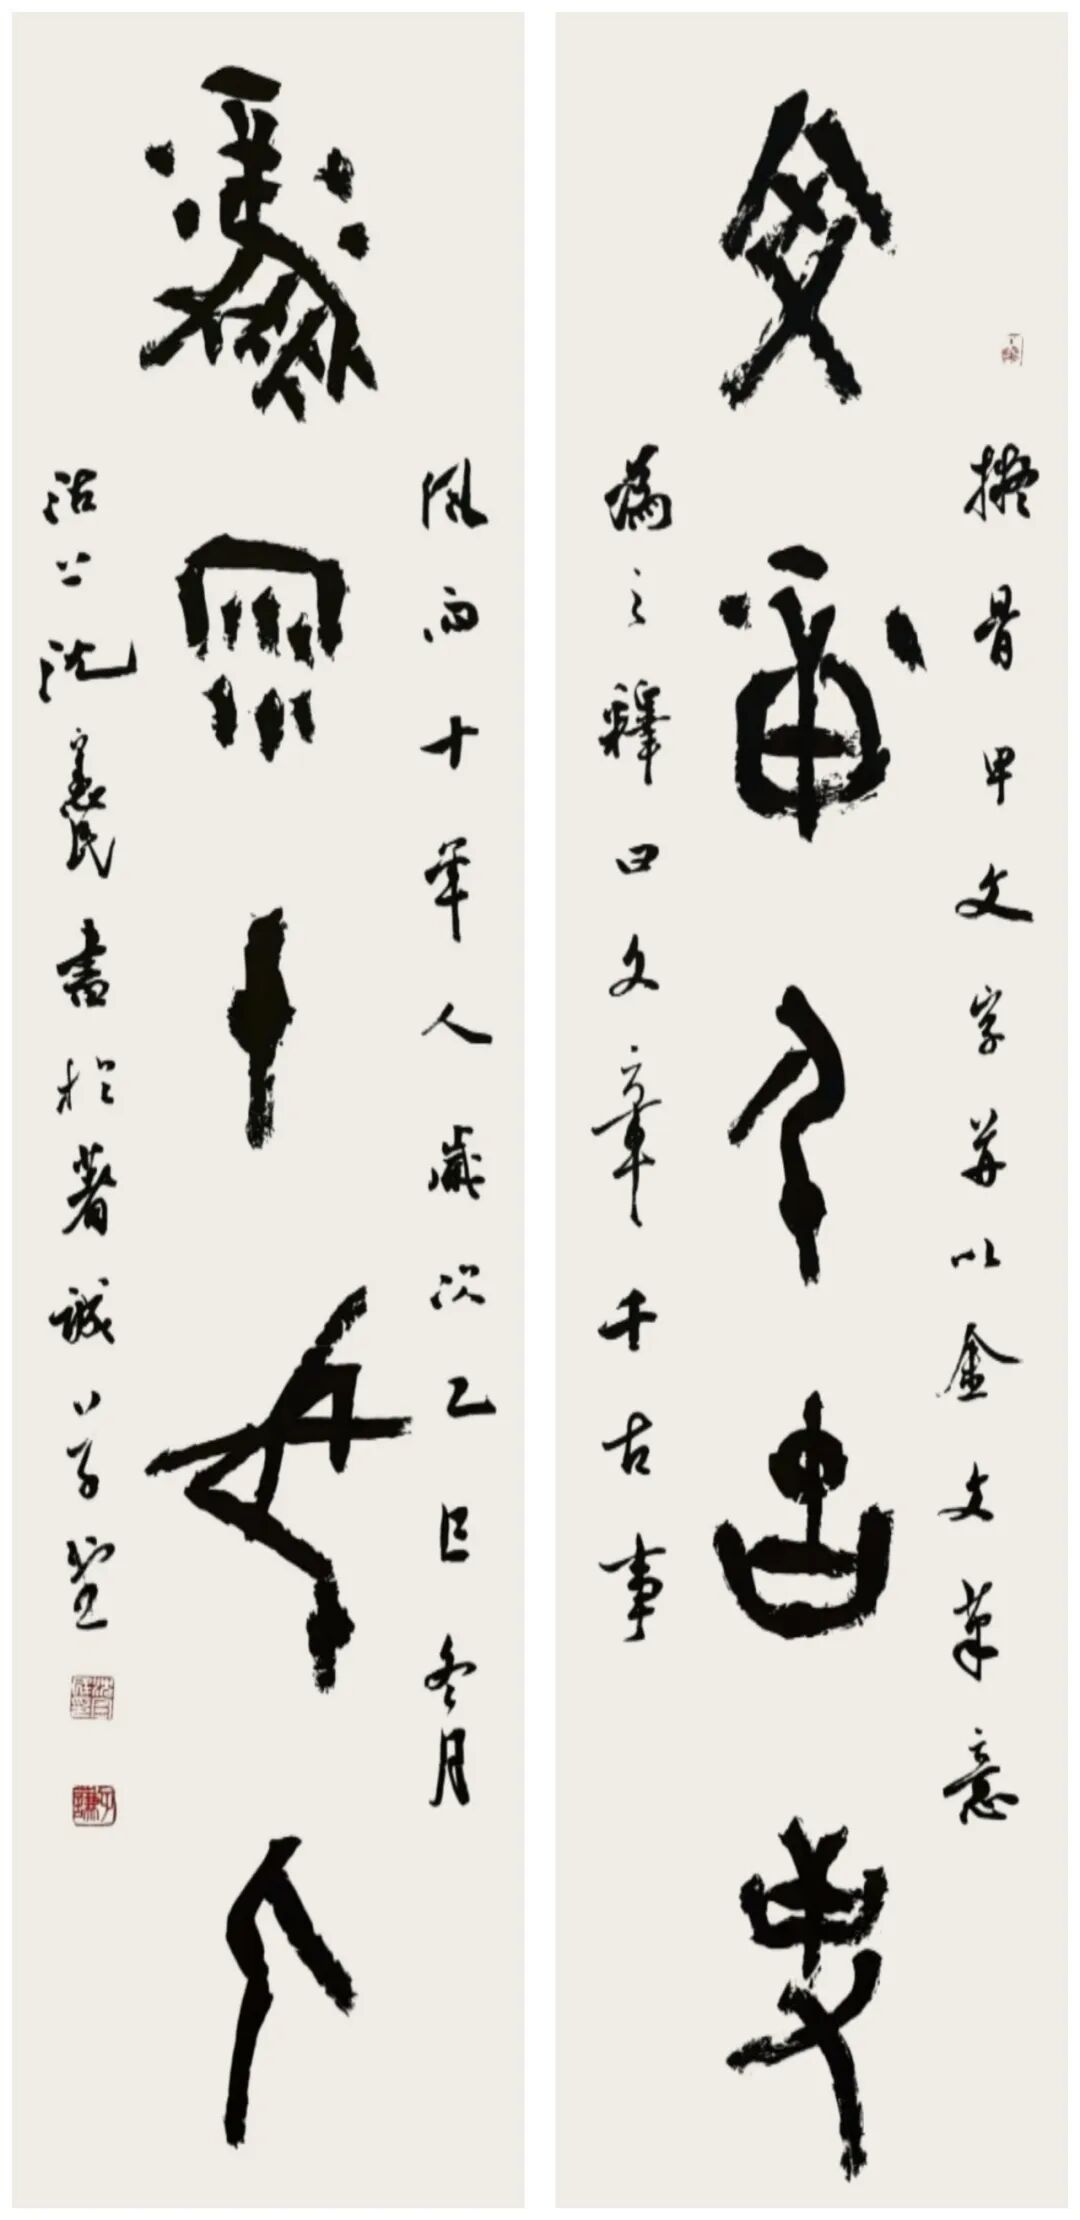 擬骨甲文字并以金文筆意
文章千古事
為之釋曰文章千古事
風雨十年人歲次乙巳冬月
風雨十年人
沽上沈民書於著誠草堂